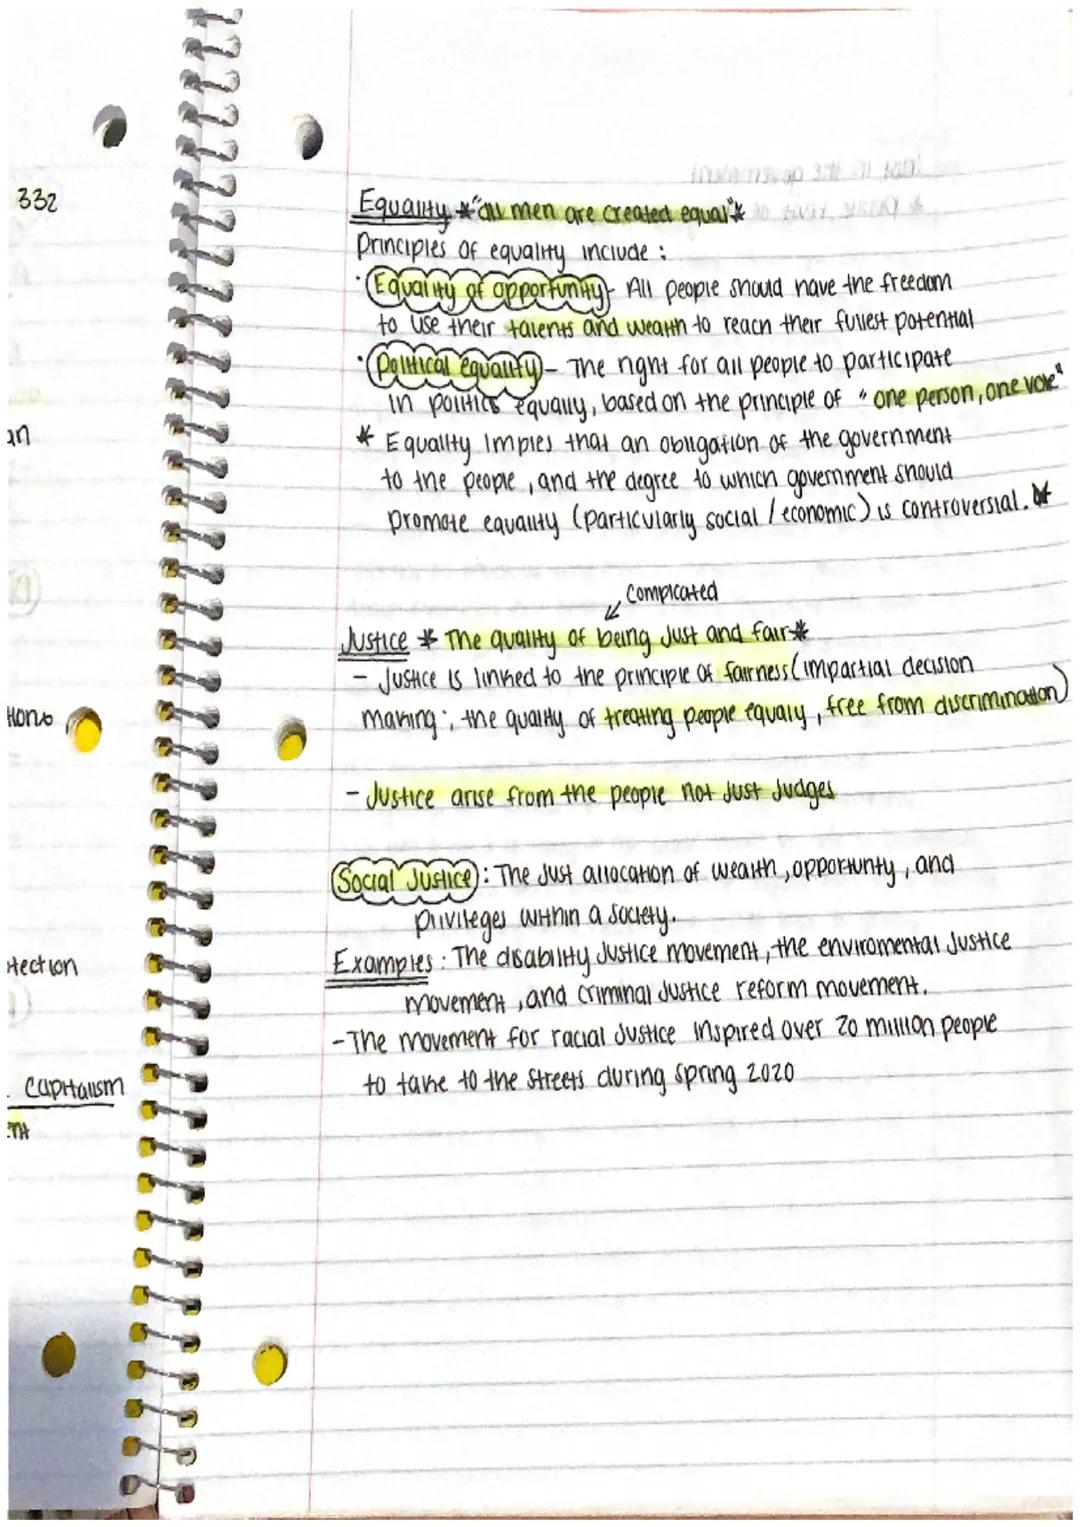 332
an
tions
tection
Capitalism
Equality *"all men are created equal"*
Principles of equality include:
· Equality of opportunity - All people should have the freedom
to use their talents and wealth to reach their fullest potential
· Political equality - The right for all people to participate
in politics equally, based on the principle of "one person, one vote"
* Equality Implies that an obligation of the government
to the people, and the degree to which government should
promote equality (particularly social / economic) is controversial. *
Complicated
Justice * The quality of being Just and fair *
- Justice is linked to the principle of fairness (impartial decision
making; the quality of treating people equaly, free from discrimination)
- Justice arise from the people not Just Judges
Social Justice: The Just allocation of wealth, opportunty, and
privileges within a society.
Examples: The disability Justice movement, the enviromental Justice
movement, and Criminal Justice reform movement.
- The movement for racial Justice inspired over 20 million people
to take to the Streets during spring 2020